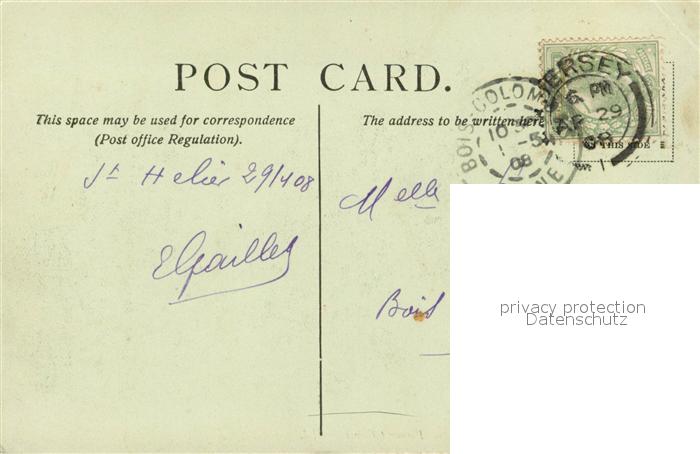 POST CARD.
This space may be used for correspondence
(Post office Regulation).
The address to be written here
JERSEY
6 PM
AP 29
08
BOIS-COLOM
10
5
08
NE
THIS SIDE
St Helier 29/4 08
Melle
Bois
privacy protection
Datenschutz